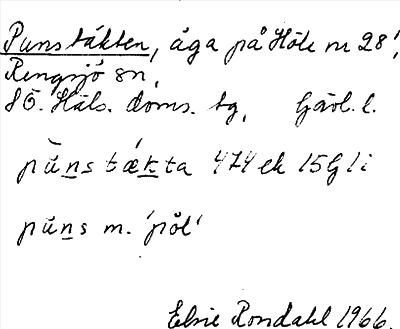 Punstäkten, åga på Höle nr 28',
Rengsjö sn,
SÖ. Häls. doms. tg, Gävl. l.
pùnstǽkta 474 ek 15G1i
pùns m. 'pöl'
Elsie Rondahl 1966.